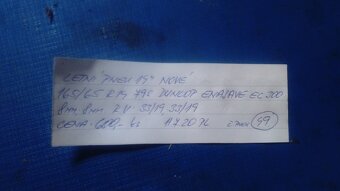 LETNÍ PNEU 14" NOVÉ
165/65 R14 79S DUNLOP ENASAVE EC300
8mm, 8mm 2 ks 33/19, 33/19
CENA 600,- ks
99